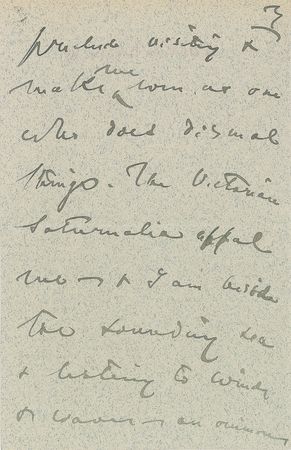 3
preclude visiting &
make me worn. as one
who does dismal
things. The Victorian
Saturnalia appal
me — & I am beside
the sounding sea
& listing to winds
& waves — an ominous